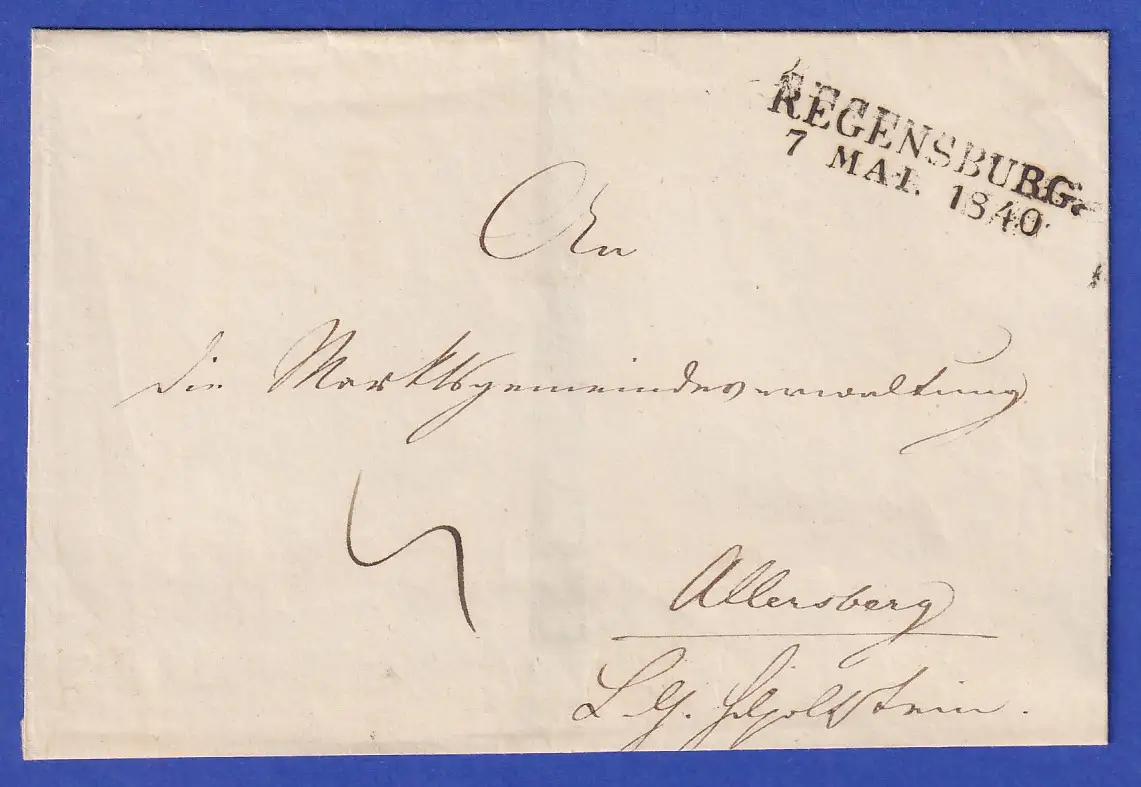 REGENSBURG.
7 MAI. 1840
An
die Marktsgemeindeverwaltung
4
Allersberg
L. G. Hilpoltstein.